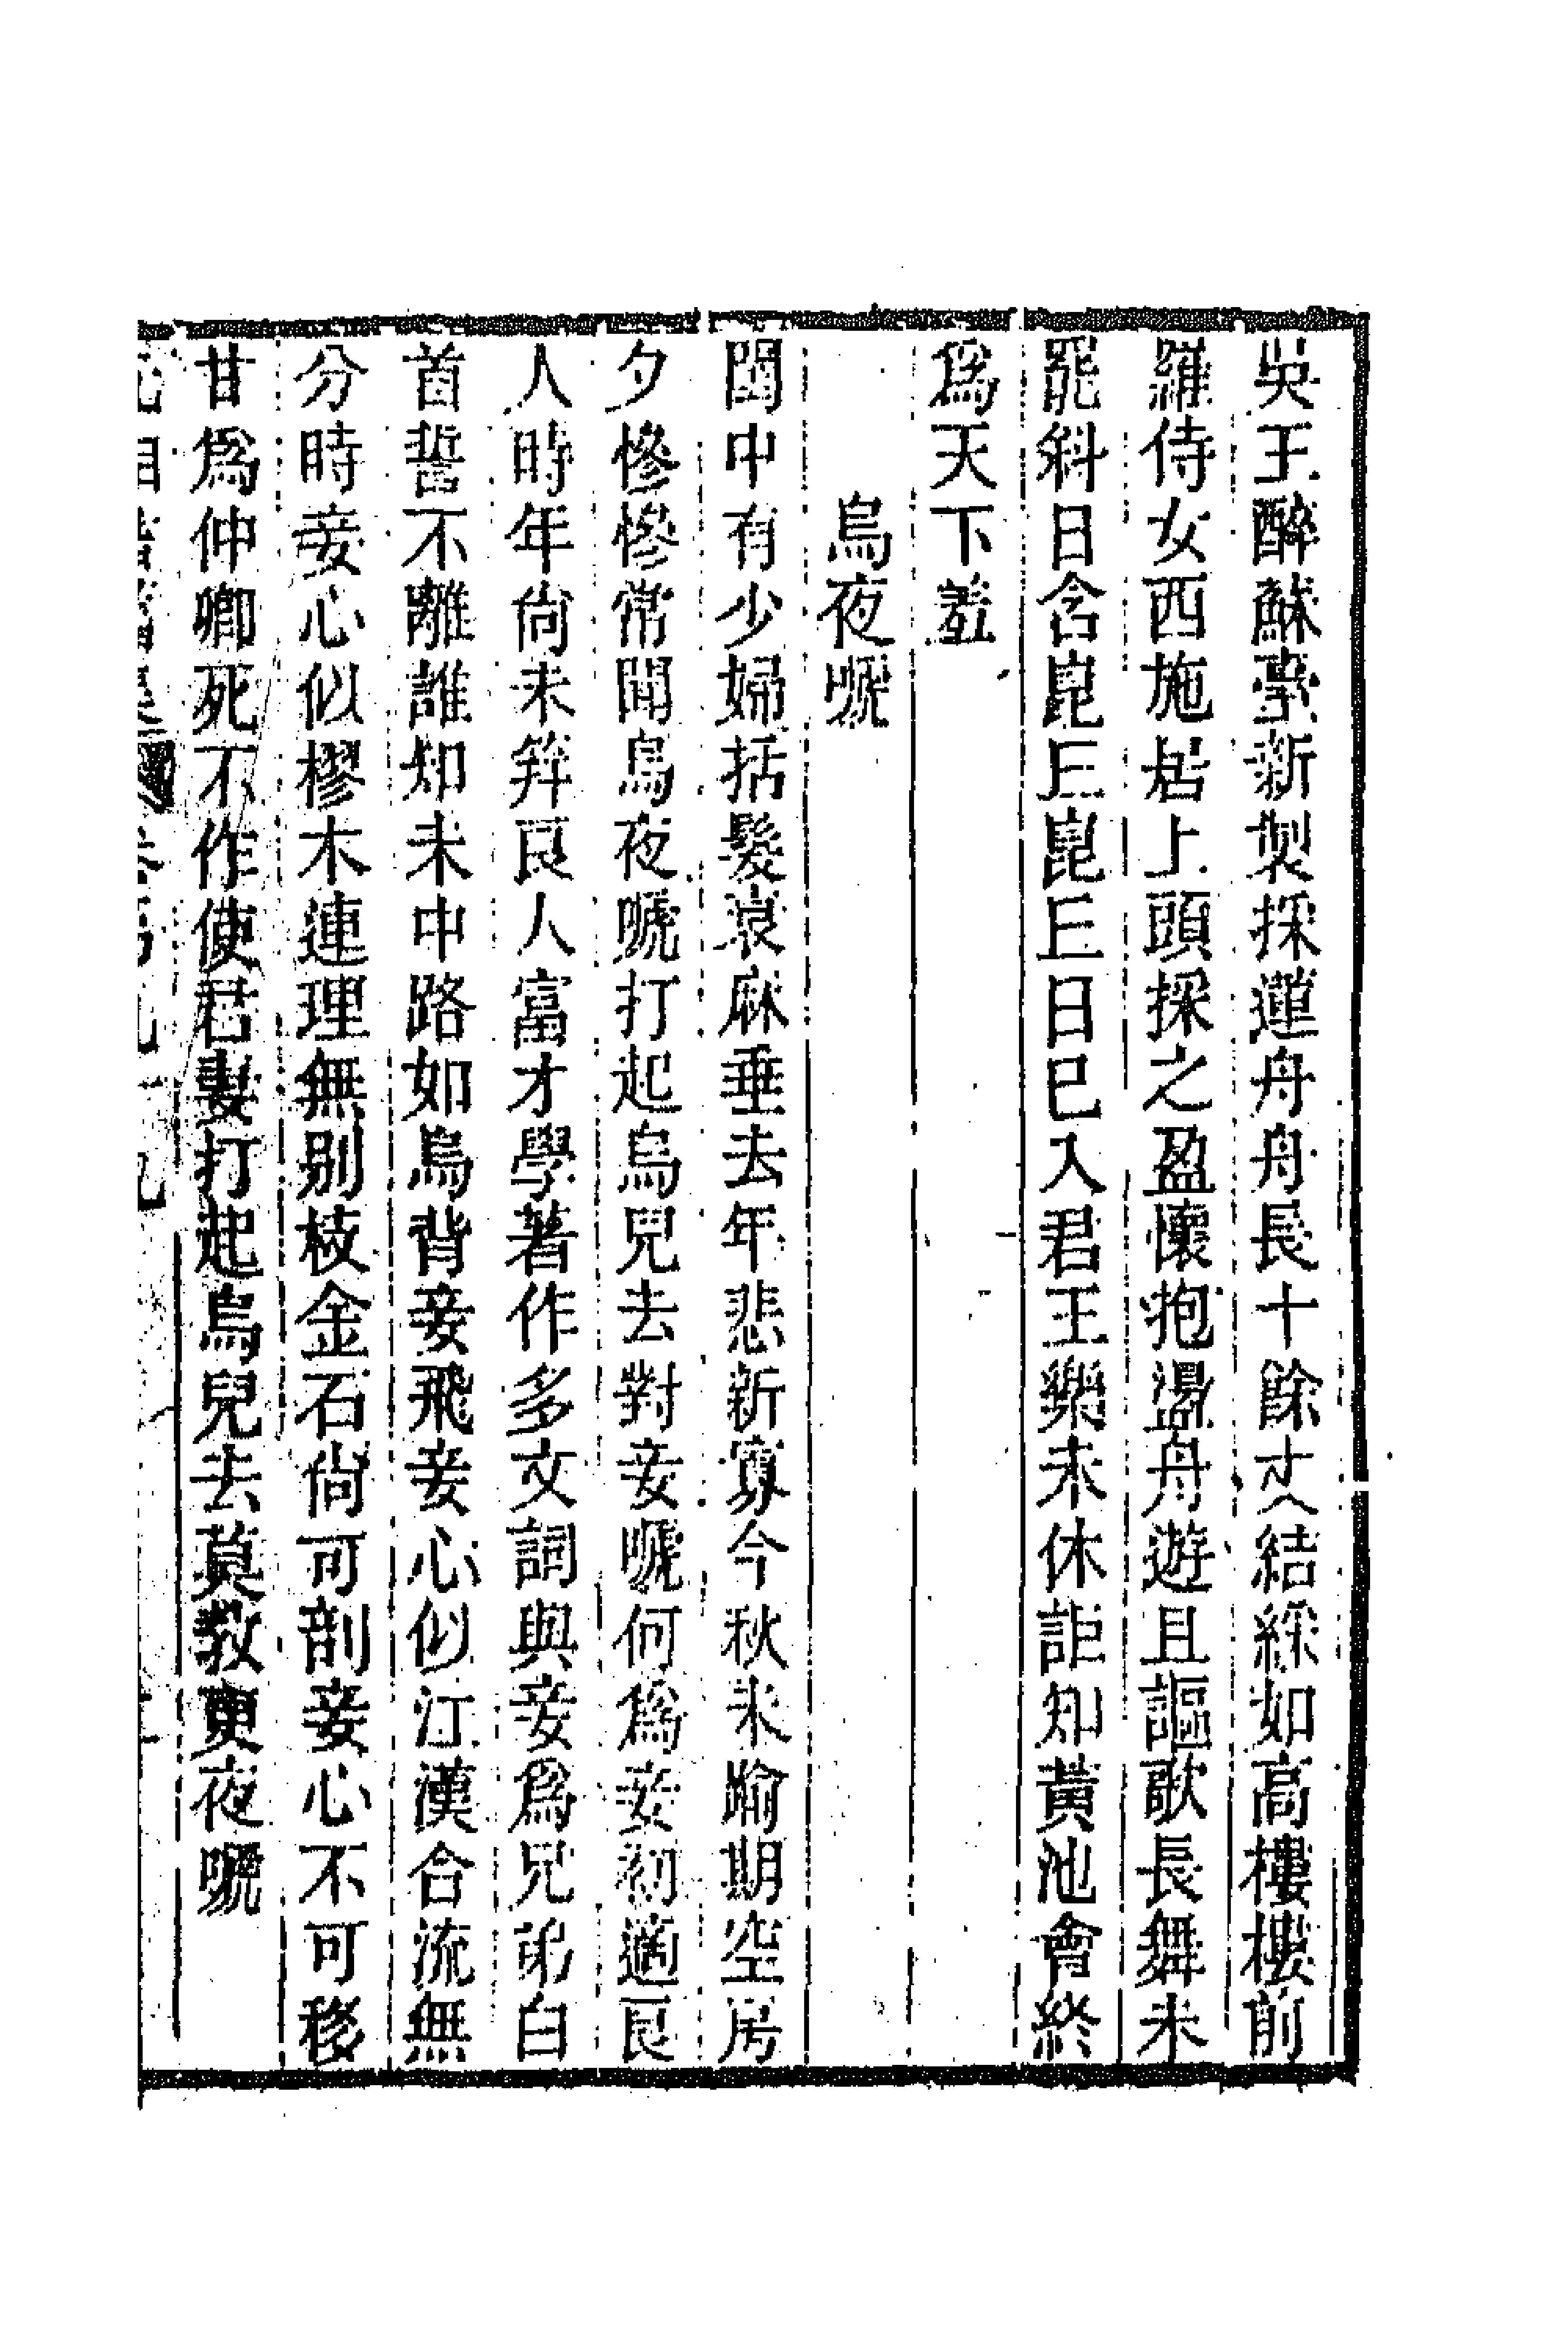 吳王醉蘇臺新製採蓮舟舟長十餘丈結綵如高樓樓前
羅侍女西施居上頭採之盈懷抱盪舟遊且謳歌長舞未
罷斜日含崑丘崑丘日已入君王樂未休詎知黃池會終
爲天下羞
烏夜嗁
閨中有少婦括髮衰麻垂去年悲新寡今秋未踰期空房
夕慘慘常聞烏夜嗁打起烏兒去對妾嗁何爲妾初適良
人時年尙未笄良人富才學著作多文詞與妾爲兄弟白
首誓不離誰知未中路如烏背妾飛妾心似江漢合流無
分時妾心似樛木連理無別枝金石尙可剖妾心不可移
甘爲仲卿死不作使君妻打起烏兒去莫教更夜嗁